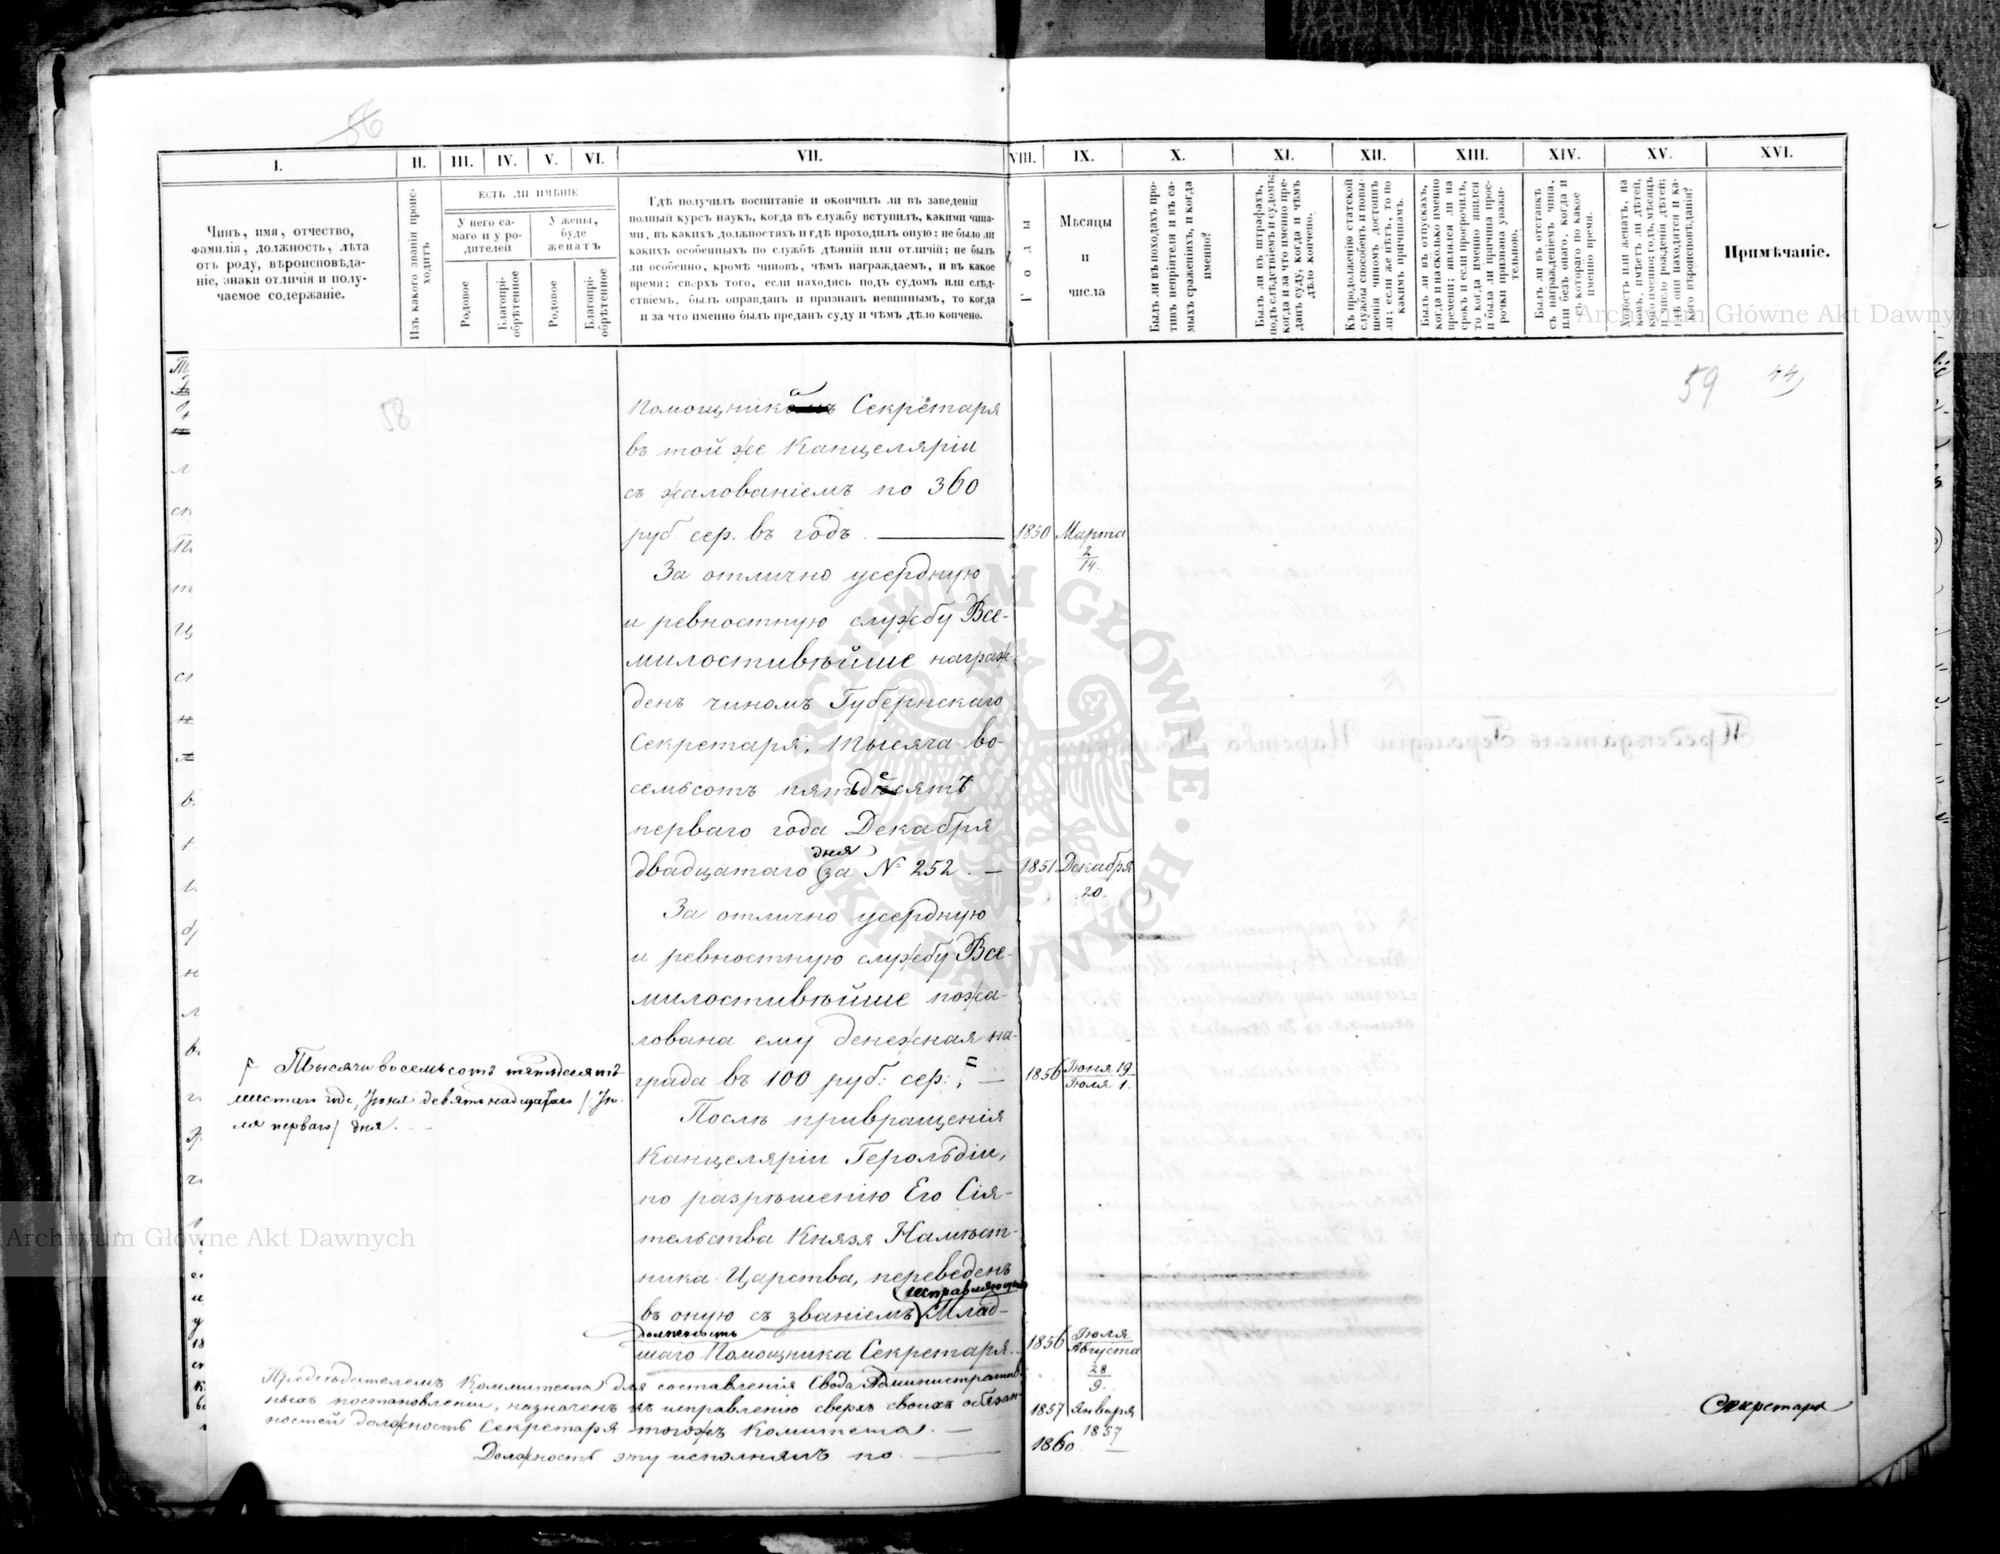 56
I.
II.
III.
IV.
V.
VI.
VII.
VIII.
IX.
X.
XI.
XII.
XIII.
XIV.
XV.
XVI.
Чинъ, имя, отчество,
фамилія, должность, лѣта
отъ роду, вѣроисповѣда-
ніе, знаки отличія и полу-
чаемое содержаніе.
Изъ какого званія проис-
ходитъ
ЕСТЬ ЛИ ИМѢНІЕ
У него са-
маго и у ро-
дителей
У жены,
буде
женатъ
Родовое
Благопрі-
обрѣтенное
Родовое
Благопрі-
обрѣтенное
Гдѣ получилъ воспитаніе и окончилъ ли въ заведеніи
полный курсъ наукъ, когда въ службу вступилъ, какими чина-
ми, въ какихъ должностяхъ и гдѣ проходилъ оную; не было ли
какихъ особенныхъ по службѣ дѣяній или отличій; не былъ
ли особенно, кромѣ чиновъ, чѣмъ награждаемъ, и въ какое
время; сверхъ того, если находясь подъ судомъ или слѣд-
ствіемъ, былъ оправданъ и признанъ невиннымъ, то когда
и за что именно былъ преданъ суду и чѣмъ дѣло кончено.
Годы
Мѣсяцы
и
числа
Былъ ли въ походахъ про-
тивъ непріятеля и въ са-
мыхъ сраженіяхъ, и когда
именно?
Былъ ли въ штрафахъ,
подъ слѣдствіемъ и судомъ;
когда и за что именно пре-
данъ суду, когда и чѣмъ
дѣло кончено.
Къ продолженію статской
службы способенъ и повы-
шенія чиномъ достоинъ
ли; если же нѣтъ, то по
какимъ причинамъ.
Былъ ли въ отпускахъ,
когда и на сколько именно
времени; явился ли на
срокъ и если просрочилъ,
то когда именно явился
и была ли причина прос-
рочки признана уважи-
тельною.
Былъ ли въ отставкѣ
съ награжденіемъ чина,
или безъ онаго, когда и
съ котораго по какое
именно время.
Холостъ или женатъ, на
комъ, имѣетъ ли дѣтей,
кого именно; годъ, мѣсяцъ
и число рожденія дѣтей;
гдѣ они находятся и ка-
кого вѣроисповѣданія?
Примѣчаніе.
58
59
44
Помощника Секретаря
въ той же Канцеляріи
съ жалованіемъ по 360
руб. сер. въ годъ. 1850 Марта
2/14.
За отлично усердную
и ревностную службу Все-
милостивѣйше награж-
денъ чиномъ Губернскаго
Секретаря, тысяча во-
семьсотъ пятьдесятъ
перваго года Декабря
дня
двадцатаго за № 252. — 1851 Декабря
20.
За отлично усердную
и ревностную службу Все-
милостивѣйше пожа-
лована ему денежная на-
града въ 100 руб: сер: — 1856 Іюня 19
Іюля 1.
Тысяча восемьсотъ пятьдесятъ
шестаго года, Іюня девятнадцатаго / Ію-
ля перваго / дня.
Послѣ превращенія
Канцеляріи Герольдіи,
по разрѣшенію Его Сія-
тельства Князя Намѣст-
ника Царства, переведенъ
исправляющаго
въ оную съ званіемъ Млад-
должность
шаго Помощника Секретаря. 1856 Іюля
Августа
28/9.
Предсѣдателемъ Комитета для составленія Свода Административ-
ныхъ постановленій, назначенъ къ исправленію сверхъ своихъ обязан-
ностей должность Секретаря тогожъ Комитета. — 1857 Января
Должность эту исполнялъ по — 1860 1857
Секретаря
ARCHIWUM GŁÓWNE AKT DAWNYCH
Archiwum Główne Akt Dawnych
Archiwum Główne Akt Dawnych